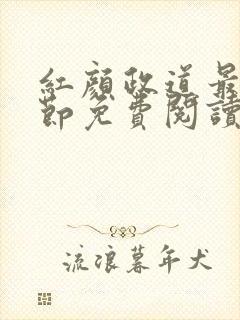 紅顏政道最
節免費閱讀
流浪暮年犬